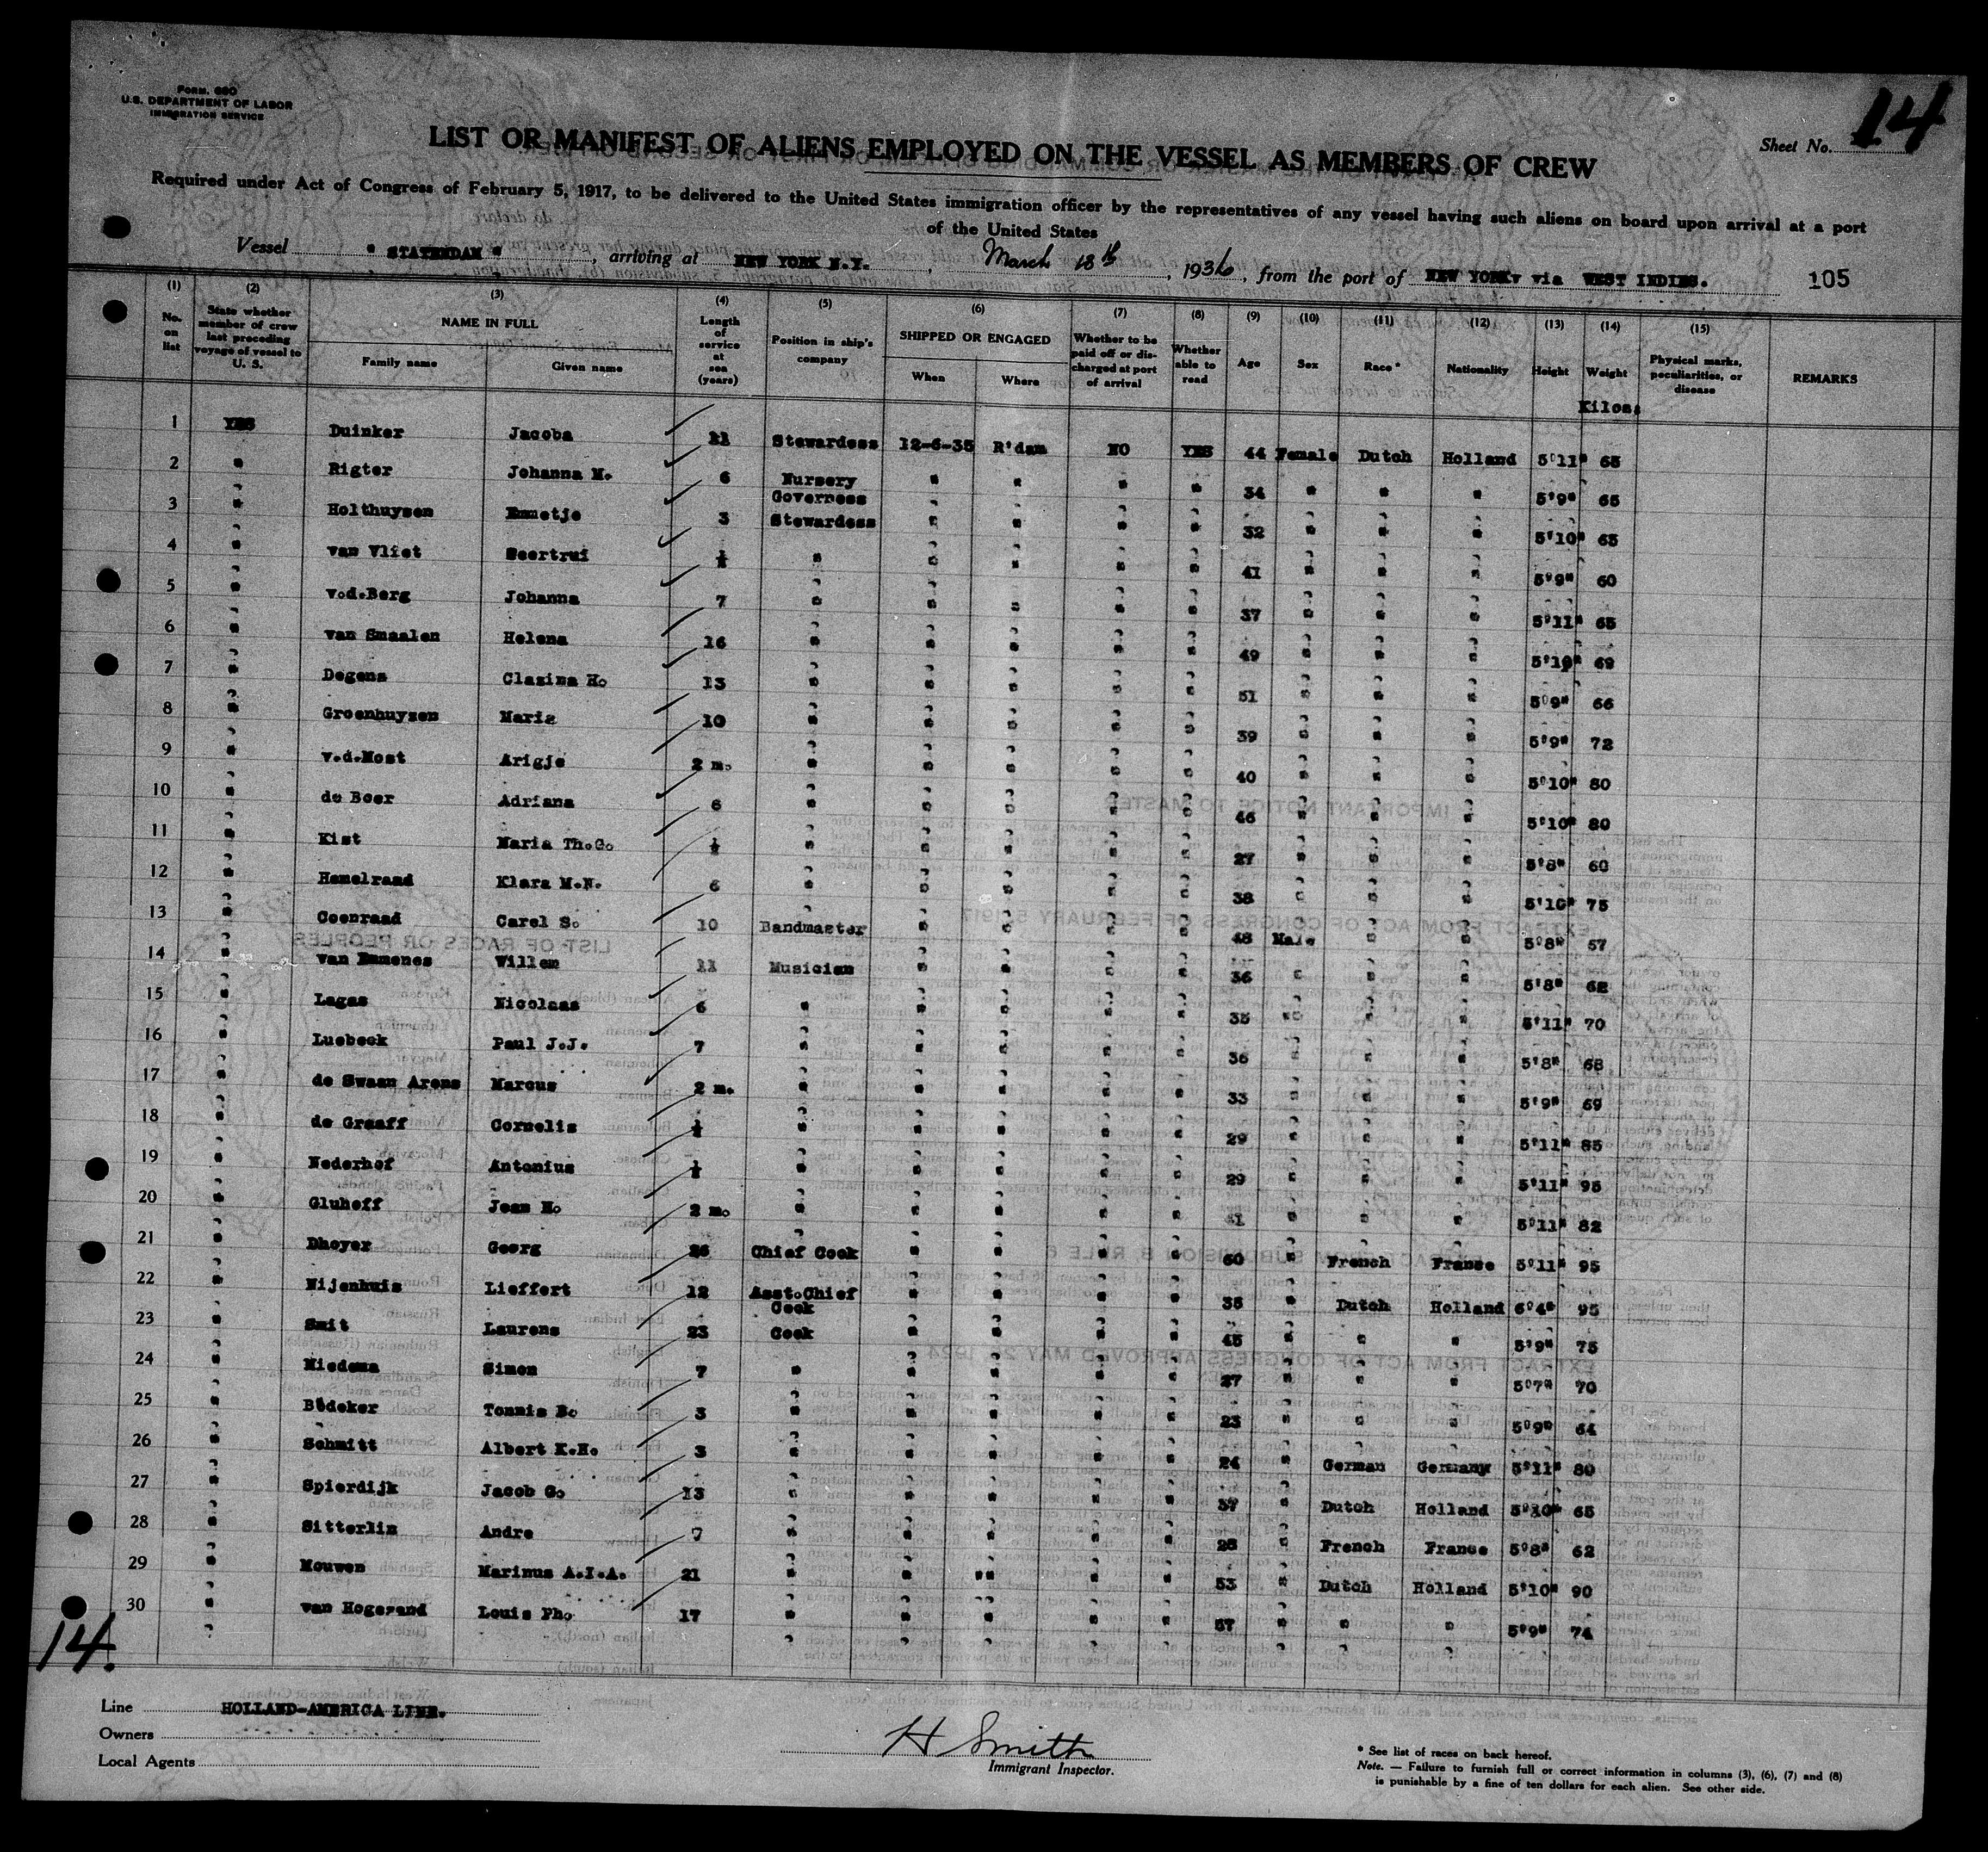 Form 680
U.S. DEPARTMENT OF LABOR
IMMIGRATION SERVICE
14
Sheet No.
LIST OR MANIFEST OF ALIENS EMPLOYED ON THE VESSEL AS MEMBERS OF CREW
Required under Act of Congress of February 5, 1917, to be delivered to the United States immigration officer by the representatives of any vessel having such aliens on board upon arrival at a port
of the United States
Vessel " STATENDAM ", arriving at NEW YORK N.Y., March 18th, 1936, from the port of NEW YORK via WEST INDIES. 105
(1) No. on list (2) State whether member of crew last preceding voyage of vessel to U. S. (3) NAME IN FULL Family name Given name (4) Length of service at sea (years) (5) Position in ship's company (6) SHIPPED OR ENGAGED When Where (7) Whether to be paid off or discharged at port of arrival (8) Whether able to read (9) Age (10) Sex (11) Race* (12) Nationality (13) Height (14) Weight (15) Physical marks, peculiarities, or disease REMARKS
Kilos
1 YES Duinker Jacoba 11 Stewardess 12-6-35 R'dam NO YES 44 Female Dutch Holland 5'11" 65
2 " Rigter Johanna M. 6 Nursery Governess " " " " 34 " " " 5'9" 65
3 " Holthuysen Emmetje 3 Stewardess " " " " 32 " " " 5'10" 65
4 " van Vliet Geertrui ½ " " " " " 41 " " " 5'9" 60
5 " v.d.Berg Johanna 7 " " " " " 37 " " " 5'11" 65
6 " van Smaalen Helena 16 " " " " " 49 " " " 5'10" 69
7 " Degens Clasina H. 13 " " " " " 51 " " " 5'9" 66
8 " Groenhuyzen Maria 10 " " " " " 39 " " " 5'9" 72
9 " v.d.Most Arigje 2 m. " " " " " 40 " " " 5'10" 80
10 " de Boer Adriana 6 " " " " " 46 " " " 5'10" 80
11 " Kist Maria Th.G. ½ " " " " " 27 " " " 5'8" 60
12 " Hemelraad Klara M.N. 6 " " " " " 38 " " " 5'10" 75
13 " Coenraad Carel S. 10 Bandmaster " " " " 48 Male " " 5'8" 57
14 " van Emmenes Willem 11 Musician " " " " 36 " " " 5'8" 62
15 " Lagas Nicolaas 6 " " " " " 35 " " " 5'11" 70
16 " Luebeck Paul J.J. 7 " " " " " 36 " " " 5'8" 68
17 " de Swaan Arons Marcus 2 m. " " " " " 33 " " " 5'9" 69
18 " de Graaff Cornelis ½ " " " " " 29 " " " 5'11" 85
19 " Nederhof Antonius ½ " " " " " 29 " " " 5'11" 95
20 " Gluhoff Jean H. 2 m. " " " " " " " " 5'11" 82
21 " Dhoyer Georg 26 Chief Cook " " " " 60 " French France 5'11" 95
22 " Nijenhuis Lieffert 12 Asst.Chief Cook " " " " 35 " Dutch Holland 6'4" 95
23 " Smit Laurens 23 Cook " " " " 45 " " " 5'9" 75
24 " Miedema Simon 7 " " " " " 27 " " " 5'7" 70
25 " Bödeker Tonnis B. 3 " " " " " 23 " " " 5'9" 64
26 " Schmitt Albert K.H. 3 " " " " " 24 " German Germany 5'11" 80
27 " Spierdijk Jacob G. 13 " " " " " 37 " Dutch Holland 5'10" 65
28 " Sitterlin Andre 7 " " " " " 28 " French France 5'8" 62
29 " Mouwen Marinus A.I.A. 21 " " " " " 53 " Dutch Holland 5'10" 90
30 " van Hogerand Louis Ph. 17 " " " " " 57 " " " 5'9" 74
14.
Line HOLLAND-AMERICA LINE.
Owners
Local Agents
H Smith
Immigrant Inspector.
* See list of races on back hereof.
Note. — Failure to furnish full or correct information in columns (3), (6), (7) and (8)
is punishable by a fine of ten dollars for each alien. See other side.